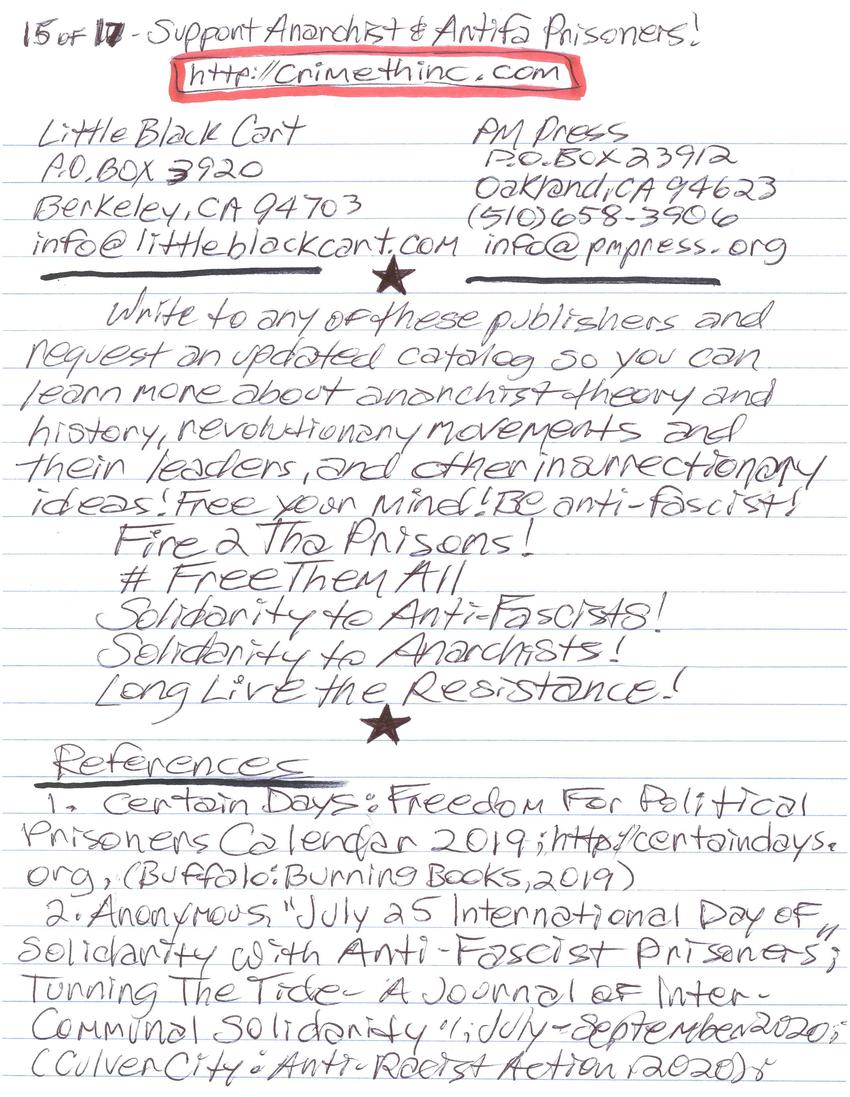 15 of 17 - Support Anarchist & Antifa Prisoners!
http://crimethinc.com
Little Black Cart
P.O. Box 3920
Berkeley, CA 94703
info@littleblackcart.com
PM Press
P.O. Box 23912
Oakland, CA 94623
(510)658-3906
info@pmpress.org
Write to any of these publishers and
request an updated catalog so you can
learn more about anarchist theory and
history, revolutionary movements and
their leaders, and other insurrectionary
ideas! Free your mind! Be anti-fascist!
Fire 2 Tha Prisons!
# FreeThemAll
Solidarity to Anti-Fascists!
Solidarity to Anarchists!
Long Live the Resistance!
References
1. Certain Days: Freedom For Political
Prisoners Calendar 2019; http://certaindays.
org, (Buffalo: Burning Books, 2019)
2. Anonymous, "July 25 International Day of
Solidarity With Anti-Fascist Prisoners";
Turning The Tide - A Journal of Inter-
Communal Solidarity"; July-September 2020;
(Culver City: Anti-Racist Action, 2020);